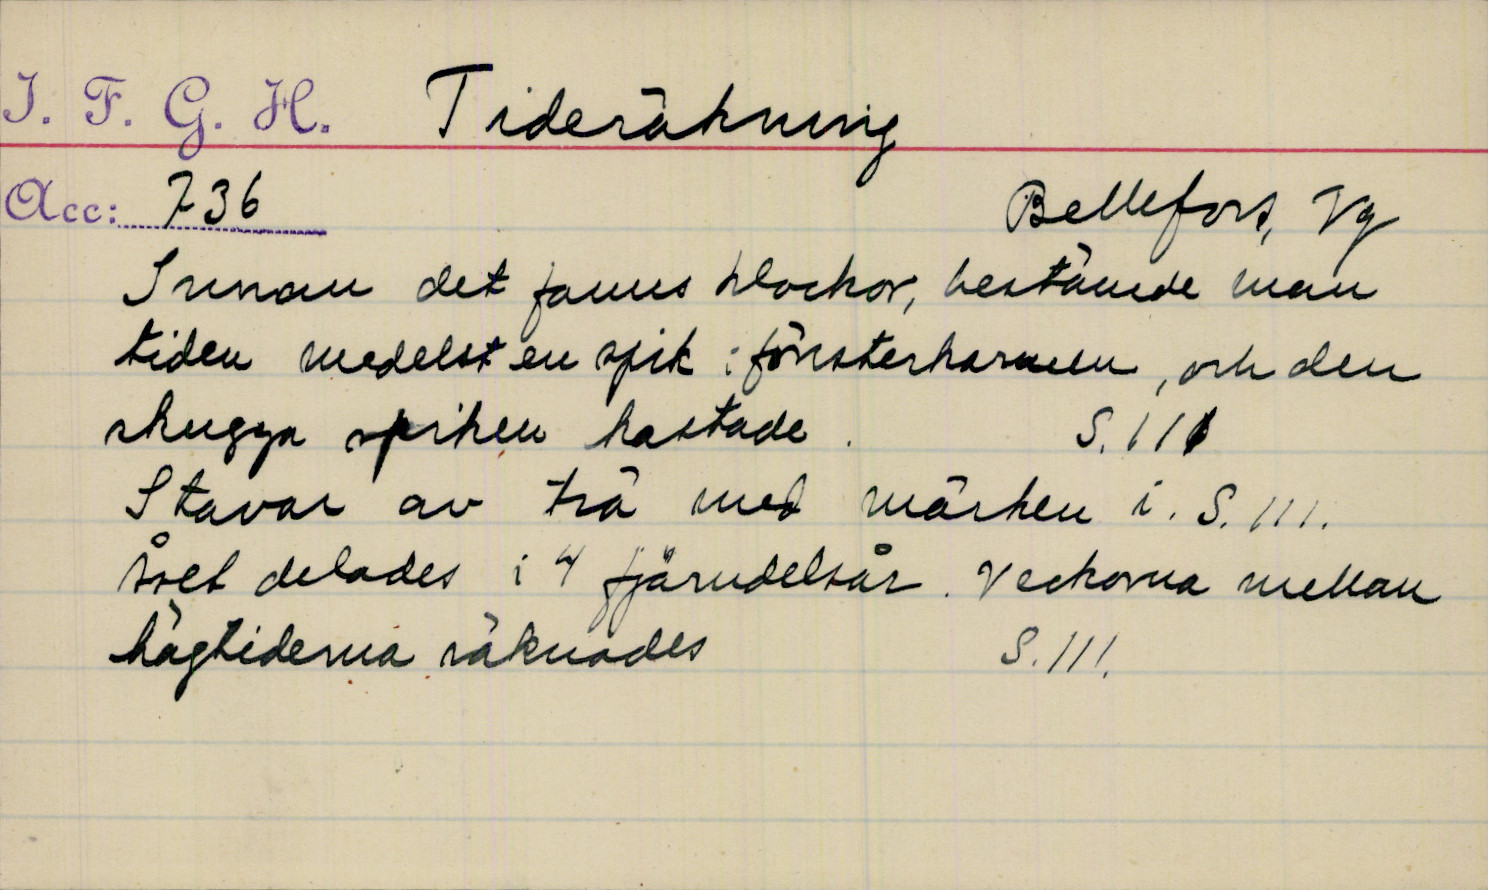 I. F. G. H. Tideräkning
Acc: 736 Bellefors, Vg
Innan det fanns klockor, bestämde man
tiden medelst en spik i fönsterkarmen, och den
skugga spiken kastade. S. 111
Stavar av trä med märken i. S. 111.
Året delades i 4 fjärndelsår. Veckorna mellan
högtiderna räknades S. 111.